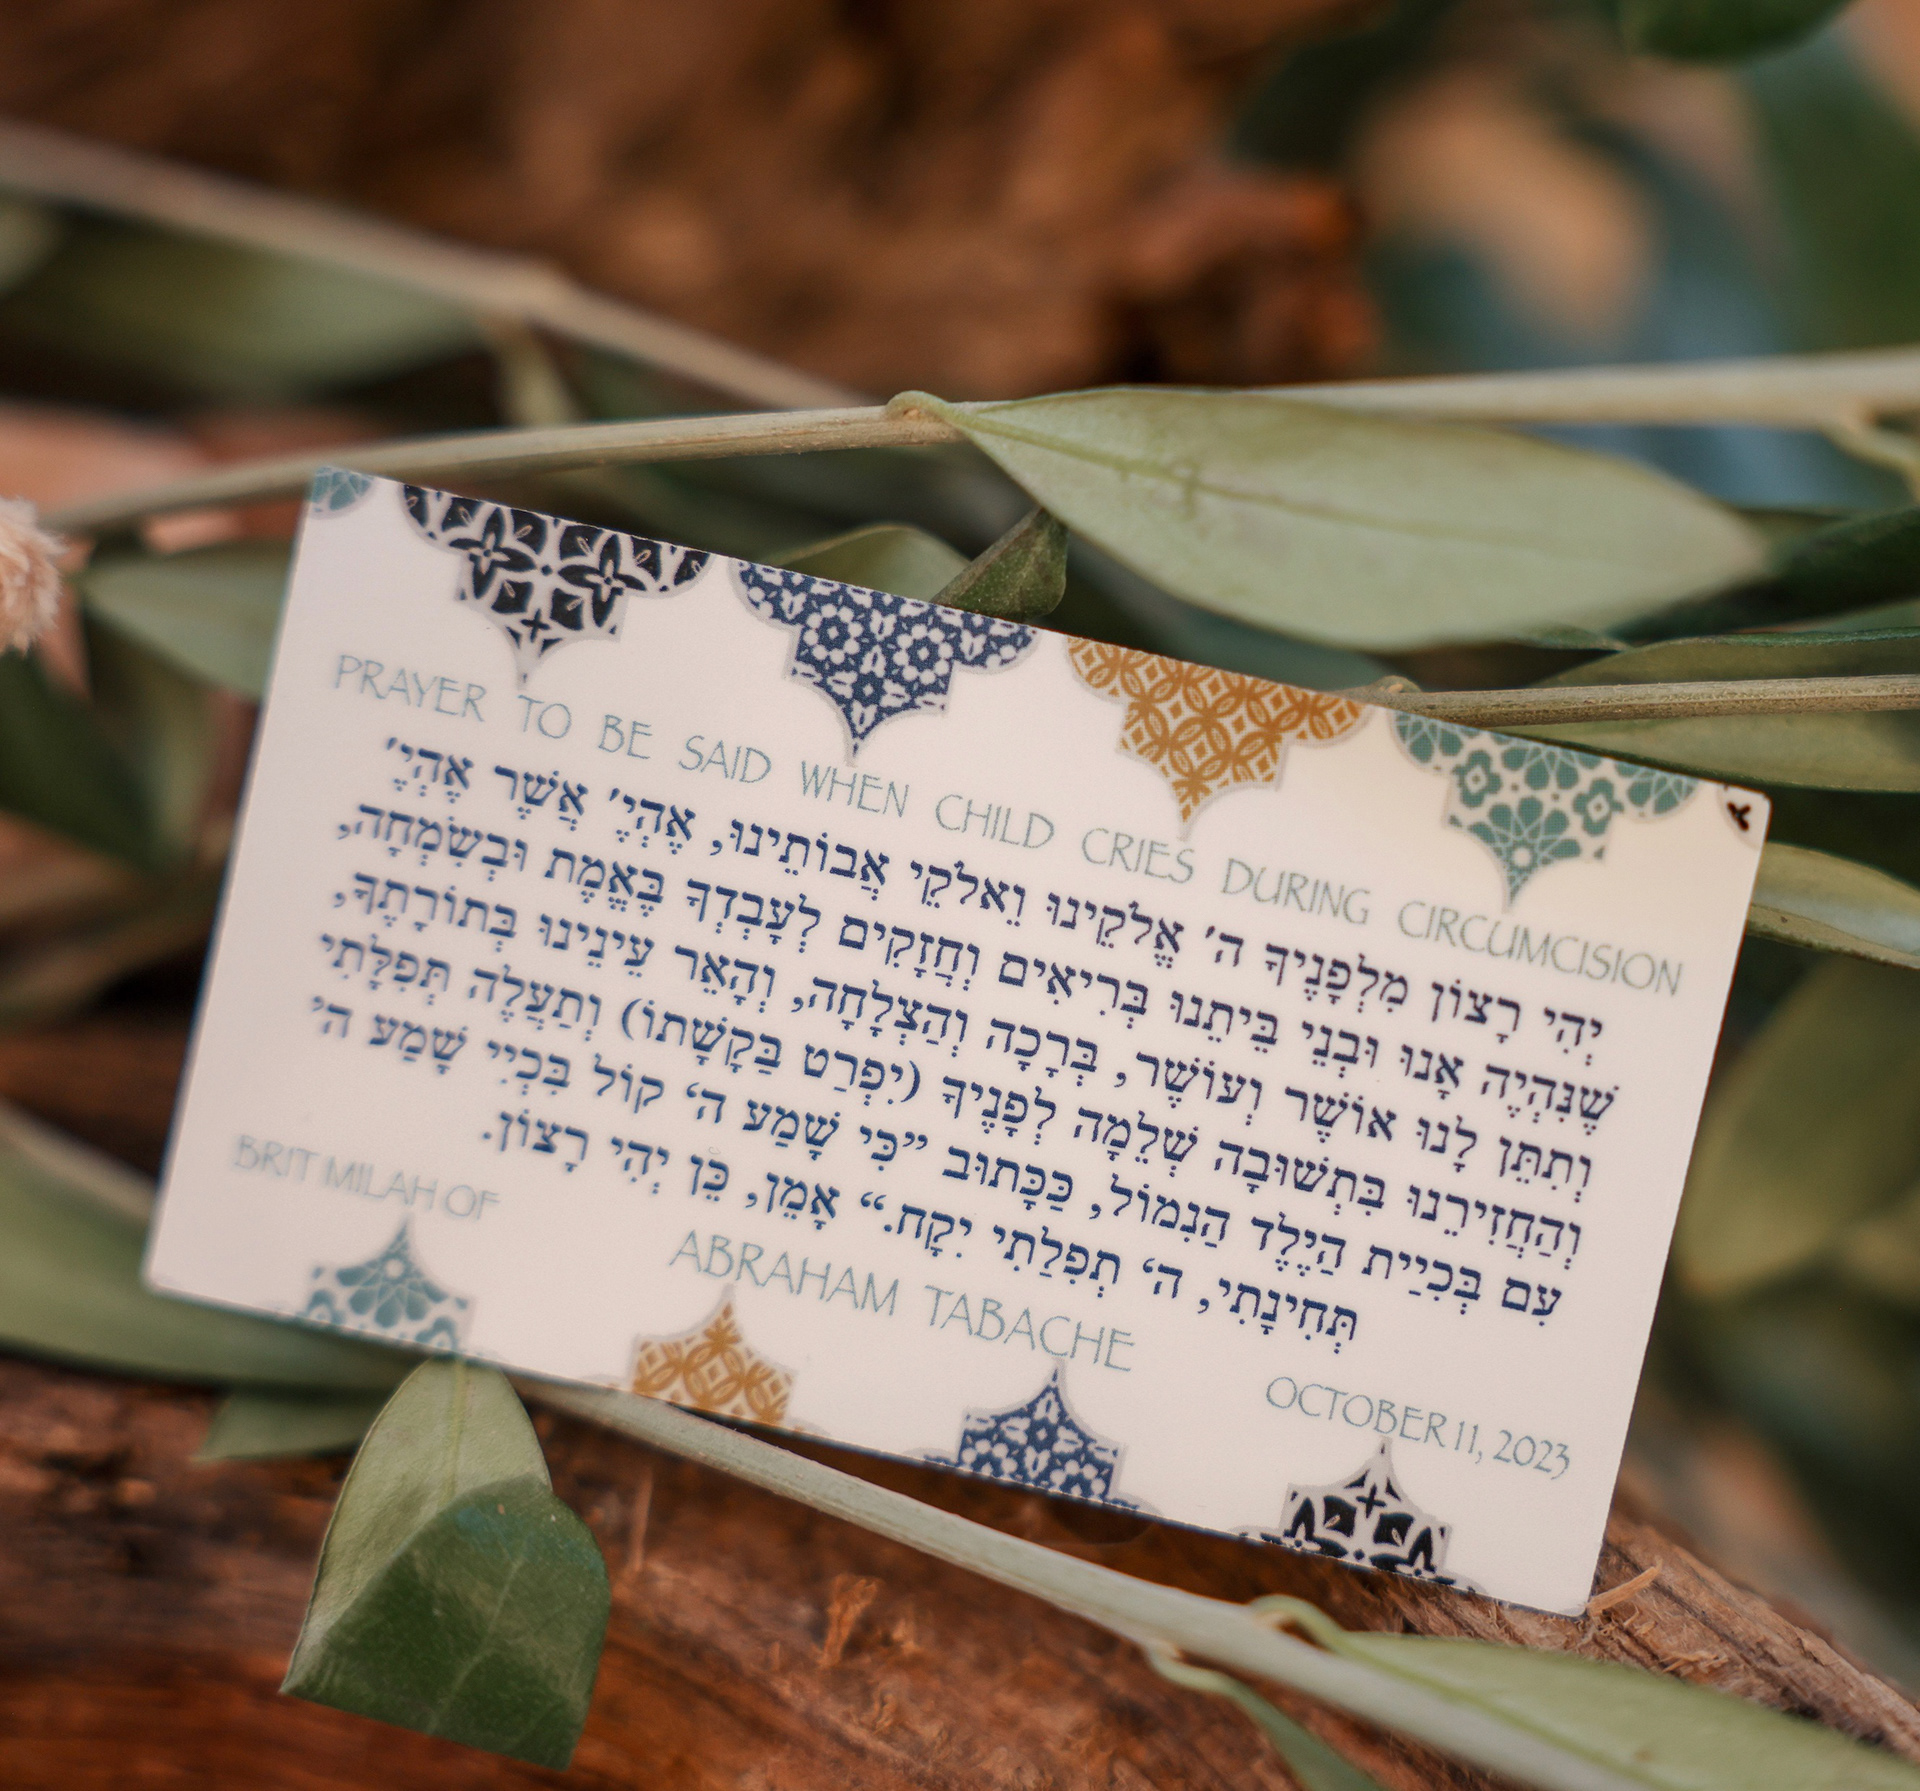 PRAYER TO BE SAID WHEN CHILD CRIES DURING CIRCUMCISION
יְהִי רָצוֹן מִלְפָנֶיךָ ה' אֱלֹקֵינוּ וֵאלֹקֵי אֲבוֹתֵינוּ, אֶהְיֶ' אֲשֶׁר אֶהְיֶ'
שֶׁנִּהְיֶה אָנוּ וּבְנֵי בֵּיתֵנוּ בְּרִיאִים וְחֲזָקִים לְעָבְדְךָ בֶּאֱמֶת וּבְשִׂמְחָה,
וְתִתֵּן לָנוּ אוֹשֶׁר וְעוֹשֶׁר, בְּרָכָה וְהַצְלָחָה, וְהָאֵר עֵינֵינוּ בְּתוֹרָתֶךָ,
וְהַחֲזִירֵנוּ בִּתְשׁוּבָה שְׁלֵמָה לְפָנֶיךָ (יִפְרַט בַּקָשָׁתוֹ) וְתַעֲלֶה תְּפִלָּתִי
עִם בְּכִיַית הַיֶלֶד הַנִמוֹל, כַּכָּתוּב ״כִּי שָׁמַע ה' קוֹל בִּכְיִי שָׁמַע ה'
תְּחִינָתִי, ה' תְפִלַתִי יִקָח.“ אָמֵן, כֵּן יְהִי רָצוֹן.
BRIT MILAH OF
ABRAHAM TABACHE
OCTOBER 11, 2023